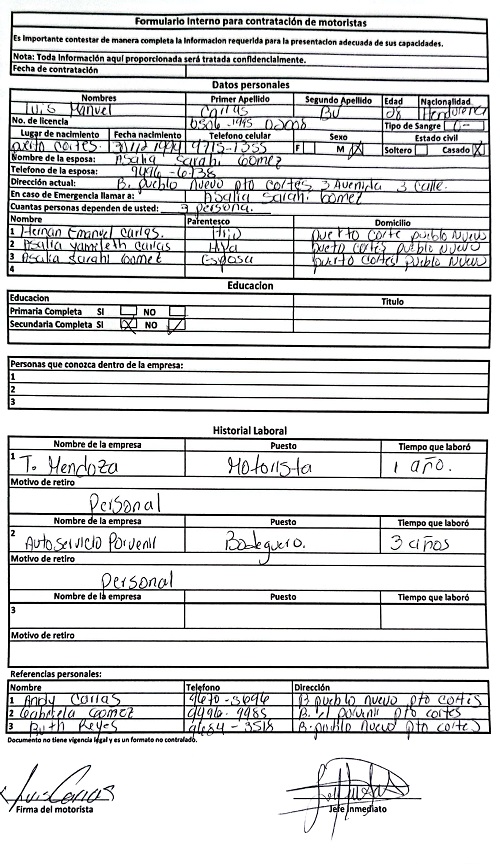 Formulario Interno para contratación de motoristas
Es Importante contestar de manera completa la Informacion requerida para la presentacion adecuada de sus capacidades.
Nota: Toda información aquí proporcionada será tratada confidencialmente.
Fecha de contratación
Datos personales
Nombres Primer Apellido Segundo Apellido Edad Nacionalidad
Luis Manuel Carias Bu Hondureña
No. de licencia 0506-1995 Tipo de Sangre O-
Lugar de nacimiento Fecha nacimiento Telefono celular Sexo Estado civil
Puerto cortes 9715-1335 F M X Soltero Casado X
Nombre de la esposa: Asalia Sarahi Gomez
Telefono de la esposa: 9496-6738
Dirección actual: B. pueblo nuevo pto cortes 3 Avenida 3 calle.
En caso de Emergencia llamar a: Asalia Sarahi Gomez
Cuantas personas dependen de usted: 3 persona.
Nombre Parentesco Domicilio
1 Hernan Emanuel Carias. Hijo puerto corte pueblo Nuevo
2 Asalia Yamileth Carias Hija puerto cortes pueblo Nuevo
3 Asalia Sarahi Gomez Esposa puerto cortes pueblo Nuevo
4
Educacion
Educacion Titulo
Primaria Completa SI NO
Secundaria Completa SI X NO
Personas que conozca dentro de la empresa:
1
2
3
Historial Laboral
Nombre de la empresa Puesto Tiempo que laboró
1 T. Mendoza Motorista 1 año.
Motivo de retiro
Personal
Nombre de la empresa Puesto Tiempo que laboró
2 Autoservicio Porvenir Bodeguero. 3 años
Motivo de retiro
Personal
Nombre de la empresa Puesto Tiempo que laboró
3
Motivo de retiro
Referencias personales:
Nombre Telefono Dirección
1 Andy Carias 9670-3696 B pueblo nuevo pto cortes
2 Gabriela Gomez 9496-9985 B. el porvenir pto cortes
3 Ruth Reyes -3518 B. pueblo nuevo pto cortes
Documento no tiene vigencia legal y es un formato no controlado.
Luis Carias
Firma del motorista Jefe Inmediato